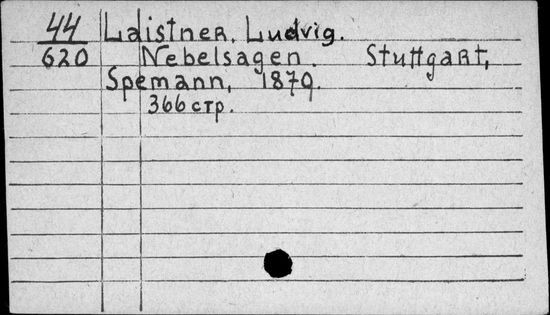 44 Laistner, Ludvig.
620 Nebelsagen. Stuttgart,
Spemann, 1879.
366 стр.